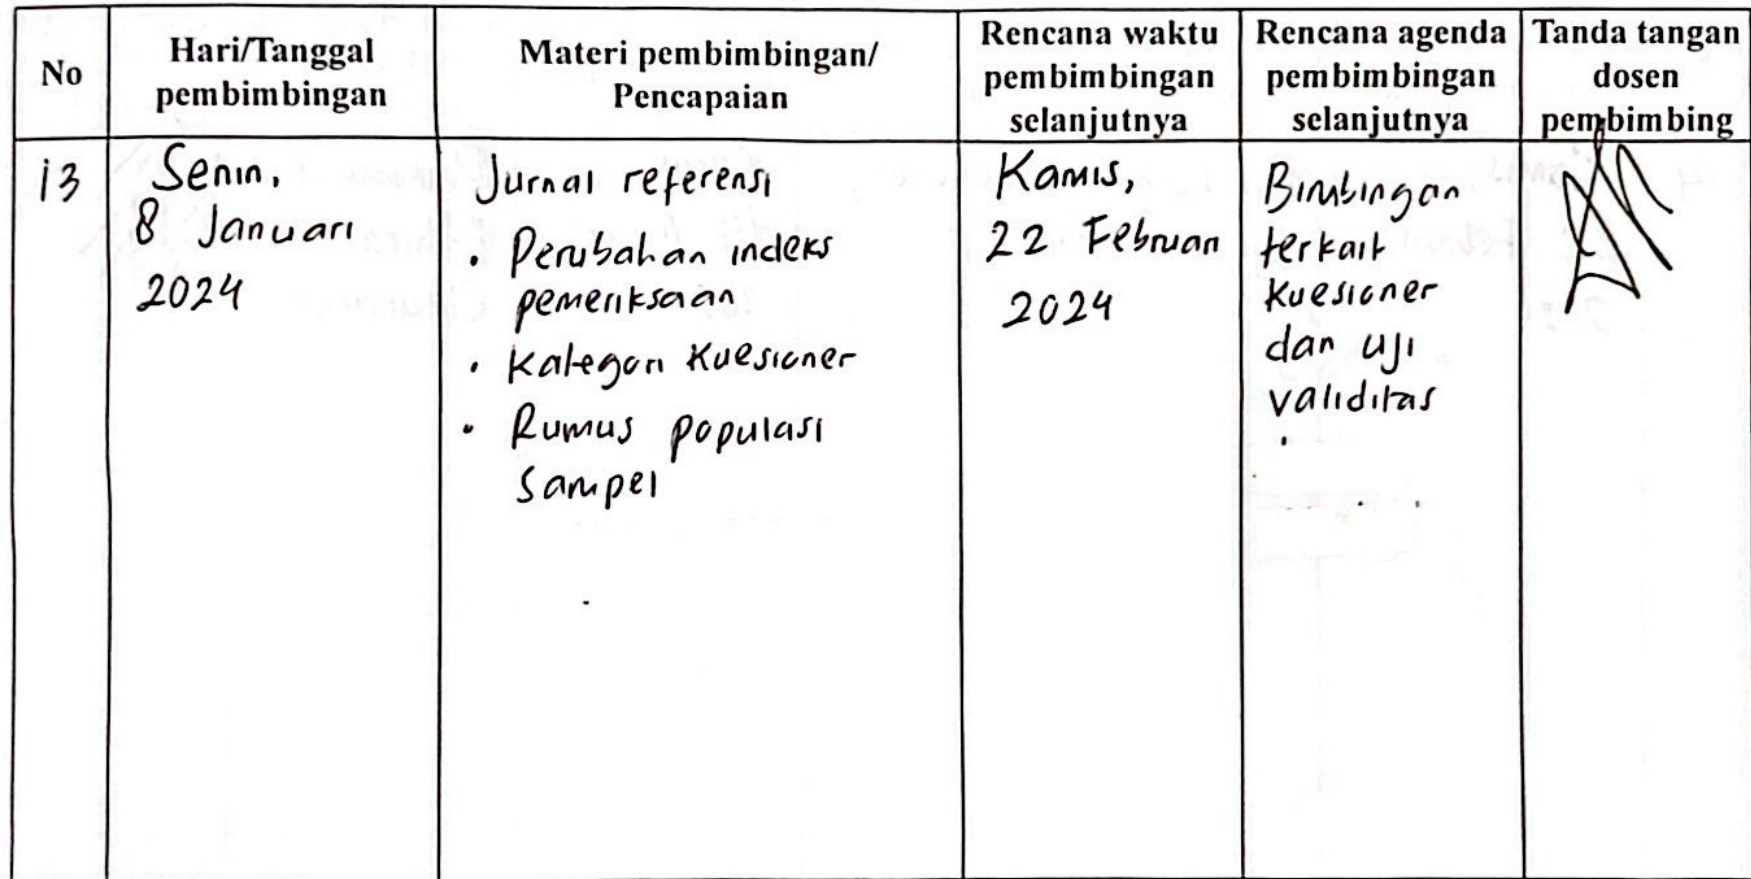 No
Hari/Tanggal
pembimbingan
Materi pembimbingan/
Pencapaian
Rencana waktu
pembimbingan
selanjutnya
Rencana agenda
pembimbingan
selanjutnya
Tanda tangan
dosen
pembimbing
13
Senin,
8 Januari
2024
Jurnal referensi
• Perubahan indeks
pemeriksaan
• Kategori Kuesioner
• Rumus populasi
Sampel
Kamis,
22 Februari
2024
Bimbingan
terkait
Kuesioner
dan uji
validitas